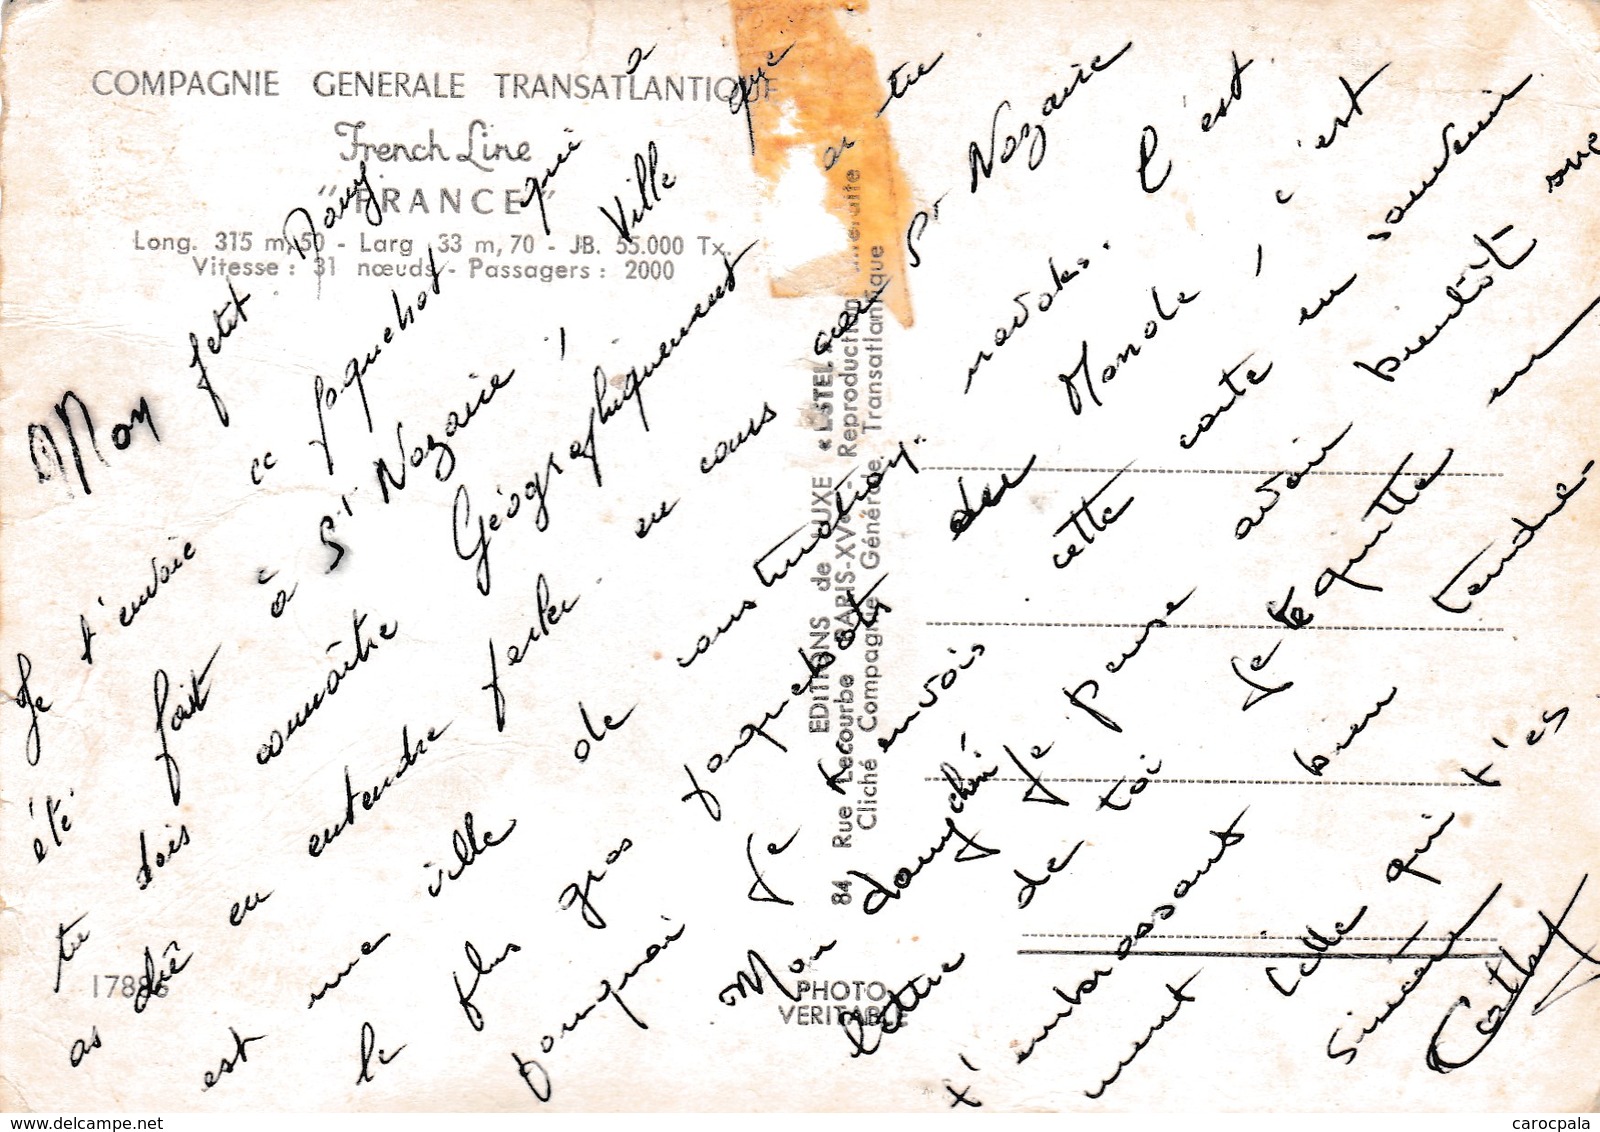 COMPAGNIE GENERALE TRANSATLANTIQUE
French Line
"FRANCE"
Long. 315 m,50 - Larg. 33 m,70 - JB. 55.000 Tx.
Vitesse : 31 nœuds - Passagers : 2000
EDITIONS de LUXE « ESTEL
84 Rue Lecourbe PARIS-XVe - Reproduction interdite
Cliché Compagnie Générale Transatlantique
178
PHOTO
VERITABLE
Mon petit Dany
Je t'envoie ce paquebot qui a
été fait à St Nazaire ! Ville que
tu dois connaître Géographiquement ou tu
as dû en entendre parler au cours car St Nazaire
est une ville de construction navales. C'est
le plus gros paquebots du Monde ! c'est
pourquoi Je t'envois cette carte en souvenir
Mon dany chéri Je pense avoir bientôt une
lettre de toi Je te quitte en
t'embrassant bien tendre-
ment Celle qui t'es
sincère
Cathy
delcampe.net
carocpala